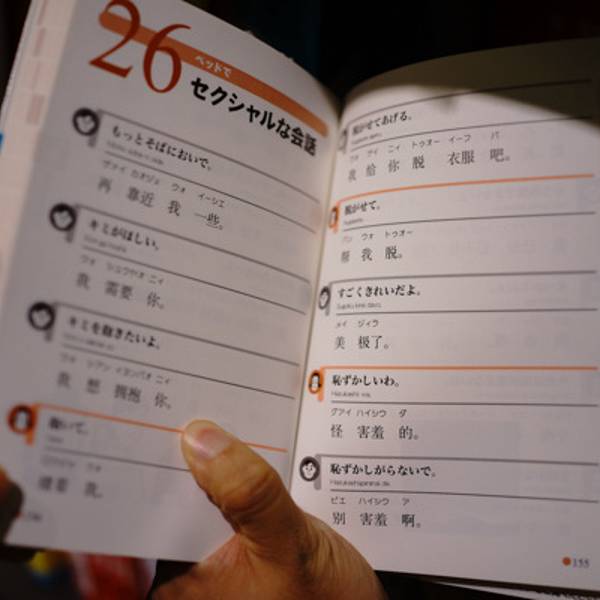 26
ベッドで
セクシャルな会話
もっとそばにおいで。
ヴァイ カオジェ ウォ イーシエ
再 靠近 我 一些。
キミがほしい。
ウォ シュウヤオ ニイ
我 需要 你。
キミを抱きたいよ。
ウォ シアン イヨンバオ ニイ
我 想 拥抱 你。
抱いて。
我。
脱がせてあげる。
ウォ ゲイ ニイ トゥオー イーフ バ
我 给 你 脱 衣服 吧。
脱がせて。
バン ウォ トゥオー
帮 我 脱。
すごくきれいだよ。
Sugoku kirei dayo.
メイ ジィラ
美 极了。
恥ずかしいわ。
Hazukashii wa.
グアイ ハイシウ ダ
怪 害羞 的。
恥ずかしがらないで。
Hazukashigaranai de.
ビエ ハイシウ ア
别 害羞 啊。
155